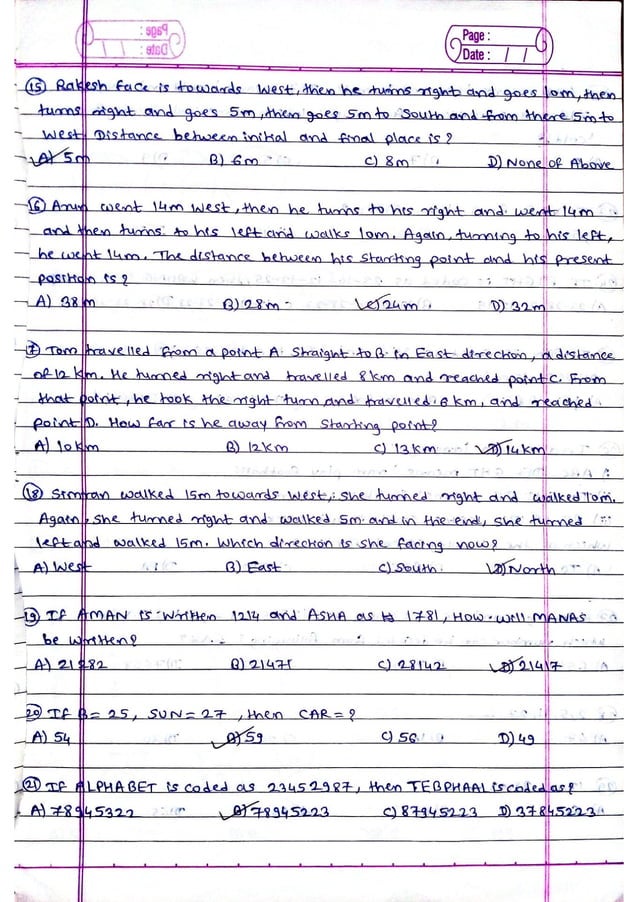 Page :
Date : / /
(15) Rakesh face is towards West, then he turns right and goes 10m, then
turns right and goes 5m, then goes 5m to South and from there 5m to
West. Distance between initial and final place is?
A) 5m B) 6m C) 8m D) None of Above
(16) Arun went 14m West, then he turns to his right and went 14m
and then turns to his left and walks 10m. Again, turning to his left,
he went 14m. The distance between his starting point and his present
position is?
A) 38m B) 28m C) 24m D) 32m
(7) Tom travelled from a point A straight to B in East direction, a distance
of 12 km. He turned right and travelled 8 km and reached point C. From
that point, he took the right turn and travelled 6 km, and reached
point D. How far is he away from starting point?
A) 10km B) 12km C) 13km D) 14km
(18) Simran walked 15m towards West, She turned right and walked 10m.
Again, she turned right and walked 5m and in the end, she turned
left and walked 15m. Which direction is she facing now?
A) West B) East C) South D) North
(19) If AMAN is written 1214 and ASHA as 1781, How will MANAS
be written?
A) 21482 B) 21471 C) 28142 D) 21417
(20) If B = 25, SUN = 27, then CAR = ?
A) 54 B) 59 C) 56 D) 49
(21) If ALPHABET is coded as 23452987, then TEBPHAAL is coded as?
A) 78945322 B) 78945223 C) 87945223 D) 37845223